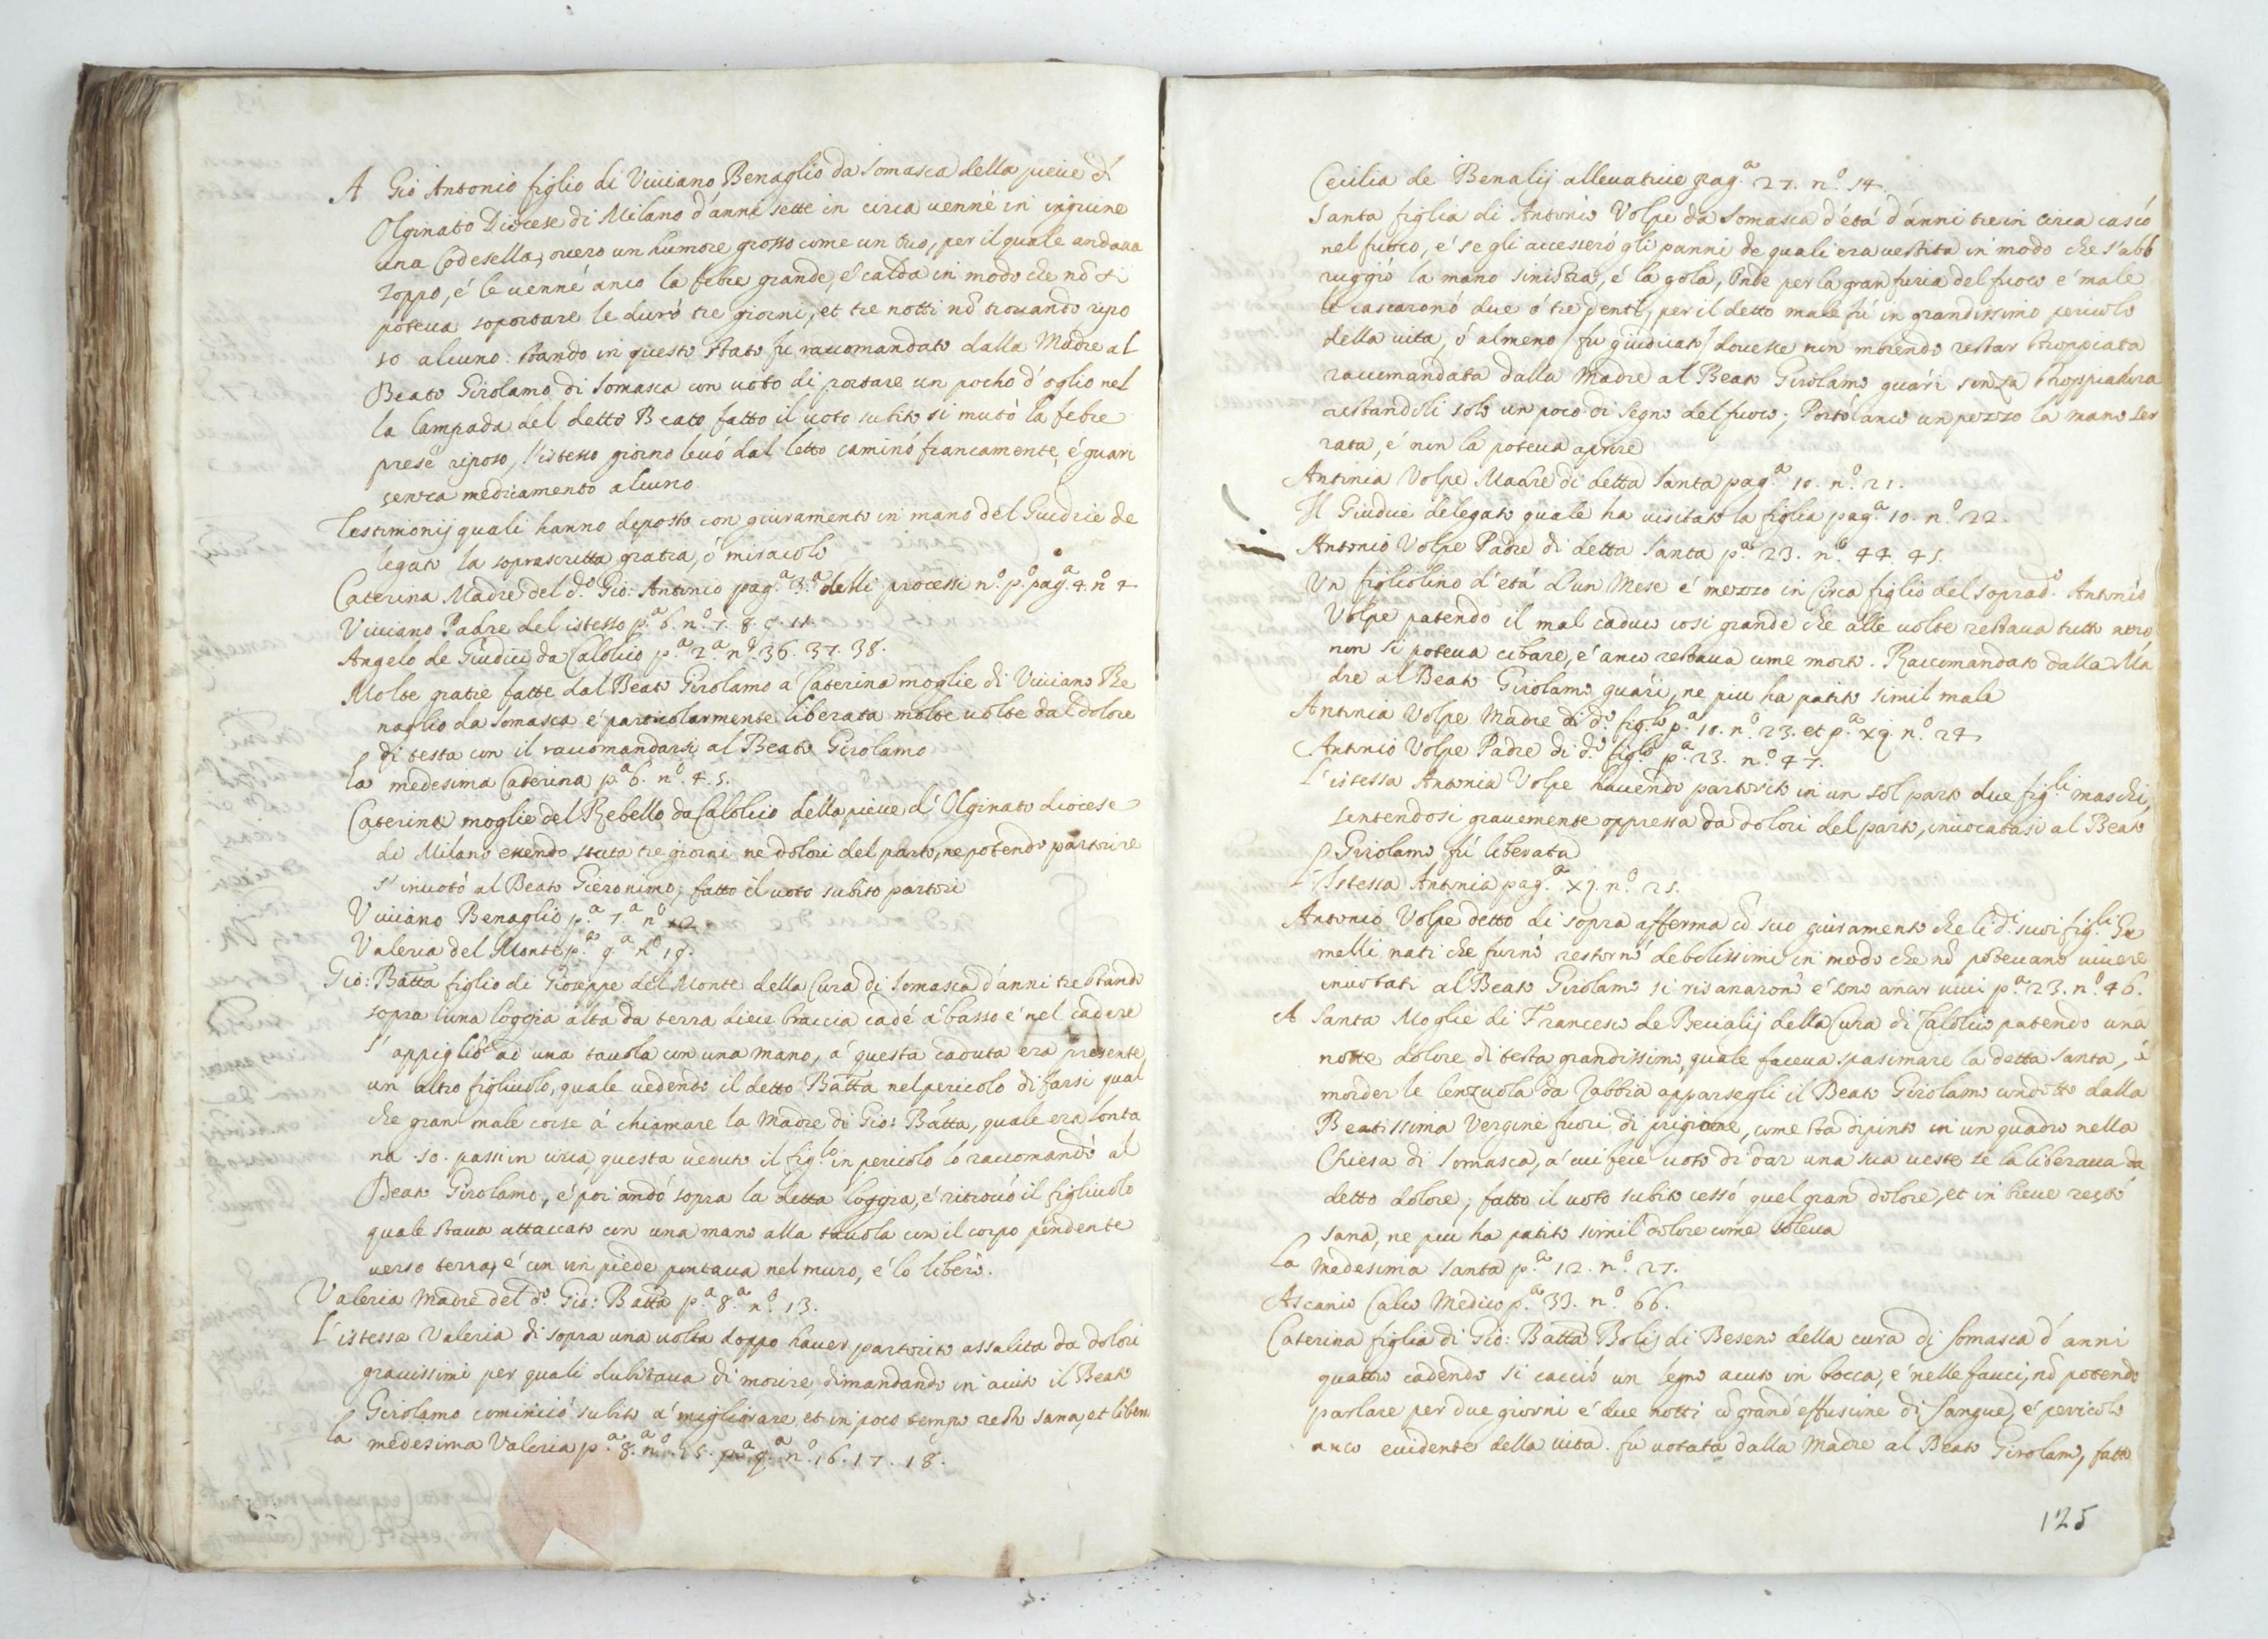 A Gio Antonio figlio di Viuiano Benaglio da Somasca della pieue d'
Olginato Diocese di Milano d'anni sette in circa uenne in inguine
una Codesella, ouero un humore grosso come un ouo, per il quale andaua
zoppo, é le uenné anco la febre grande, é calda in modo che nõ si
poteua soportare le duró tre giorni, et tre notti nõ trouando ripo
so alcuno. stando in questo stato fu raccomandato dalla Madre al
Beato Girolamo di Somasca con uoto di portare un pocho d'oglio nel
la lampada del detto Beato fatto il uoto subito si mutò la febre
prese riposo, l'istesso giorno leuó dal letto caminó francamente, é guari
senza medicamento alcuno.
Testimonij quali hanno deposto con giuramento in mano del Giudice de
legato la soprascritta gratia, ó miracolo
Caterina Madre del d.º Gio: Antonio pag.ª 3.ª delli processi n.º p.º pag.ª 4. n.º 4
Viuiano Padre del istesso p.ª 6. n.º 7. 8. 9. 11.
Angelo de Giudici da Calolcio p.ª 2.ª n.º 36. 37. 38.
Molte gratie fatte dal Beato Girolamo a Caterina moglie di Viuiano Be
naglio da Somasca é particolarmente liberata molte uolte dal dolore
di testa con il raccomandarsi al Beato Girolamo
La medesima Caterina p.ª 6. n.º 4. 5.
Caterina moglie del Rebello da Calolcio della pieue d'Olginato diocese
di Milano essendo stata tre giorni ne dolori del parto, ne potendo partorire
s'inuotó al Beato Gieronimo, fatto il uoto subito partori
Viuiano Benaglio p.ª 7.ª n.º 12
Valeria del Monte p.ª 9.ª n.º 19.
Gio: Batta figlio di Gioseppe del Monte della Cura di Somasca d'anni tre stando
sopra una loggia alta da terra diece braccia cadé á basso é nel cadere
s'appiglió ad una tauola con una mano, a' questa caduta era presente
un altro figliuolo, quale uedendo il detto Batta nel pericolo di farsi qual
che gran male corse á chiamare la Madre di Gio: Batta, quale era lonta
na .50. passi in circa, questa ueduto il fig.lo in pericolo lo raccomandò al
Beato Girolamo, é poi andó sopra la detta loggia, é ritrouó il figliuolo
quale staua attaccato con una mano alla tauola con il corpo pendente
uerso terra, é con un piede pontaua nel muro, é lo liberò.
Valeria Madre del d.º Gio: Batta p.ª 8.ª n.º 13.
L'istessa Valeria di sopra una uolta doppo hauer partorito assalita da dolori
grauissimi per quali dubitaua di morire, dimandando in aiuto il Beato
Girolamo cominció subito a' migliorare, et in poco tempo restò sana, et libera
La medesima Valeria p.ª 8.ª n.º 15. p.ª 9.ª n.º 16. 17. 18.
Cecilia de Benalij alleuatrice pag.ª 27. n.º 54.
Santa figlia di Antonio Volpe da Somasca d'etá d'anni tre in circa cascó
nel fuoco, é se gli acceseró gli panni de quali era uestita in modo che s'abb
ruggió la mano sinistra, é la gola, Onde per la gran furia del fuoco é male
le cascaronó due ó tre denti, per il detto male fú in grandissimo pericolo
della uita, ó almeno /fu giudicato/ douesse non morendo restar stroppiata
raccomandata dalla Madre al Beato Girolamo guari senza stroppiatura
restandoli solo un poco di segno del fuoco; Portó anco un pezzo la mano ser
rata, é non la poteua aprire
Antonia Volpe Madre di detta Santa pag.ª 10. n.º 21.
Il Giudice delegato quale ha uisitato la figlia pag.ª 10. n.º 22.
Antonio Volpe Padre di detta Santa p.ª 23. n.º 44. 45.
Vn figliolino d'etá d'un Mese é mezzo in Circa figlio del soprad.º Antonio
Volpe patendo il mal caduco cosi grande che alle uolte restaua tutto nero
non si poteua cibare, é anco restaua come morto. Raccomandato dalla Ma
dre al Beato Girolamo guari, ne piu ha patito simil male
Antonia Volpe Madre di d.º fig.lo p.ª 10. n.º 23. et p.ª xj. n.º 24
Antonio Volpe Padre di d.º fig.lo p.ª 23. n.º 47.
L'istessa Antonia Volpe hauendo partorito in un sol parto due fig.li maschi,
sentendosi grauemente oppressa da dolori del parto, inuocatasi al Beato
Girolamo fú liberata
L'Istessa Antonia pag.ª xj. n.º 25.
Antonio Volpe detto di sopra afferma cõ suo giuramento che li d.i suoi fig.li Ge
melli nati che furnò restornó debolissimi in modo che nõ poteuano uiuere
inuotati al Beato Girolamo si risanaronó é sono ancor uiui p.ª 23. n.º 46.
A Santa Moglie di Francesco de Becialij della Cura di Calolcio patendo una
notte dolore di testa grandissimo, quale faceua spasimare la detta Santa, é
morder le lenzuola da rabbia apparsegli il Beato Girolamo condotto dalla
Beatissima Vergine fuori di prigione, come sta dipinto in un quadro nella
Chiesa di Somasca, a' cui fece uoto di dar una sua ueste se la liberaua da
detto dolore; fatto il uoto subito cessó quel gran dolore, et in breue restó
sana, ne piu ha patito simil dolore come soleua
La Medesima Santa p.ª 12. n.º 27.
Ascanio Calco Medico p.ª 33. n.º 66.
Caterina figlia di Gio: Batta Bolij di Beseno della cura di Somasca d'anni
quattro cadendo si cacció un legno acuto in bocca, é nelle fauci, nõ potendo
parlare per due giorni é due notti cõ grand'effusione di Sangue, é pericolo
anco euidente della uita. fu uotata dalla Madre al Beato Girolamo, fatto
125